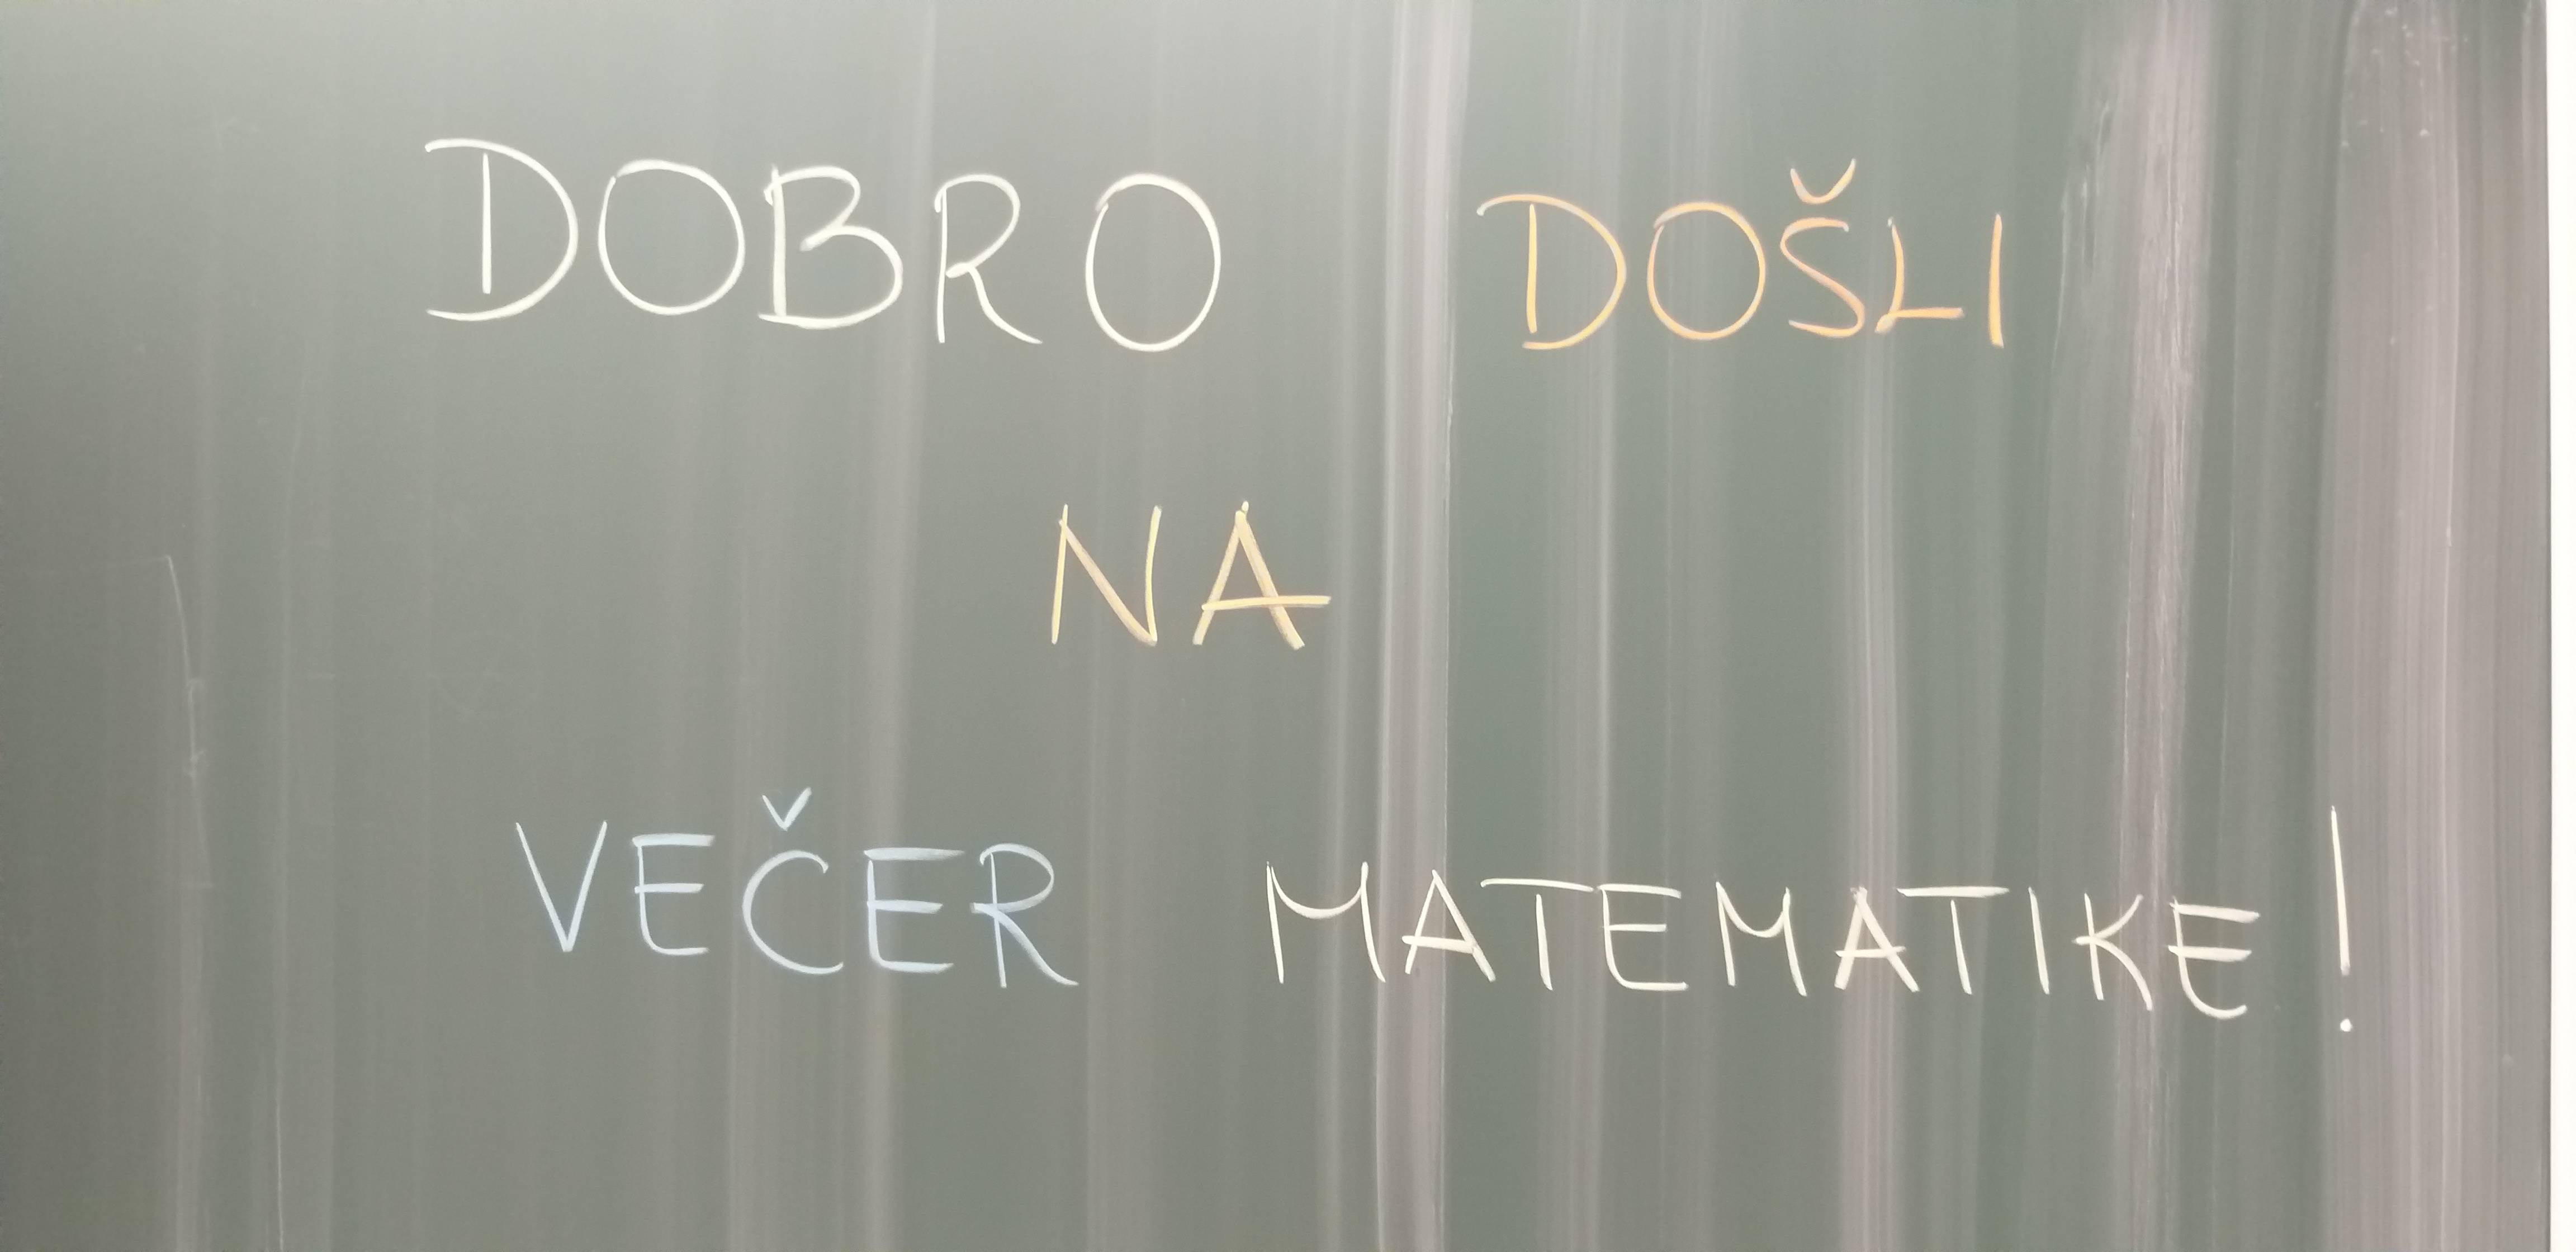 DOBRO DOŠLI
NA
VEČER MATEMATIKE!